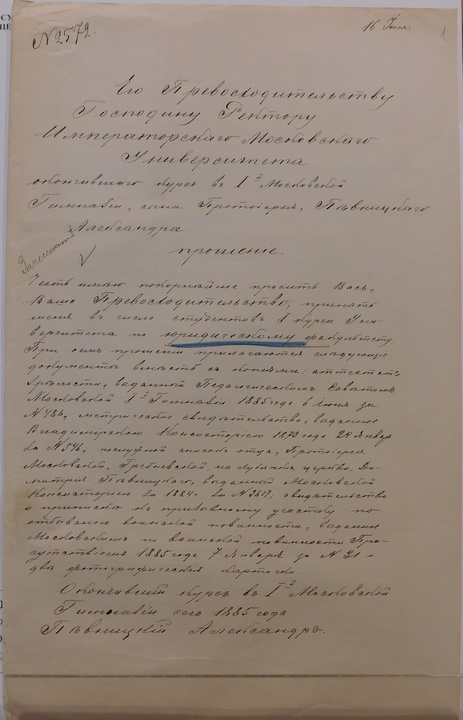 № 2572.
16 Іюля
1
Его Превосходительству
Господину Ректору
Императорскаго Московскаго
Университета
окончившаго курсъ въ Iй Московской
Гимназіи, сына Протоіерея, Пѣвницкаго
Александра
прошеніе.
Честь имѣю покорнѣйше просить Васъ,
Ваше Превосходительство, принять
меня въ число студентовъ I курса Уни-
верситета по юридическому факультету.
При семъ прошеніи прилагаются слѣдующіе
документы вмѣстѣ съ копіями: аттестатъ
зрѣлости, выданный Педагогическимъ Совѣтомъ
Московской Iй Гимназіи 1885 года въ Іюнѣ за
№ 486, метрическое свидѣтельство, выданное
Владимірскою Консисторіею 1873 года 24 Января
за № 546, послужной списокъ отца, Протоіерея
Московской, Гребневской, на Лубянкѣ церкви, Ди-
митрія Пѣвницкаго, выданный Московской
Консисторіею за 1884. за № 3617, свидѣтельство
о припискѣ къ призывному участку по
отбыванію воинской повинности, выданное
Московскимъ по воинской повинности При-
сутствіемъ 1885 года 7 Января за № 31 и
двѣ фотографическія карточки.
Окончившій курсъ въ Iй Московской
Гимназіи сего 1885 года
Пѣвницкій Александръ.